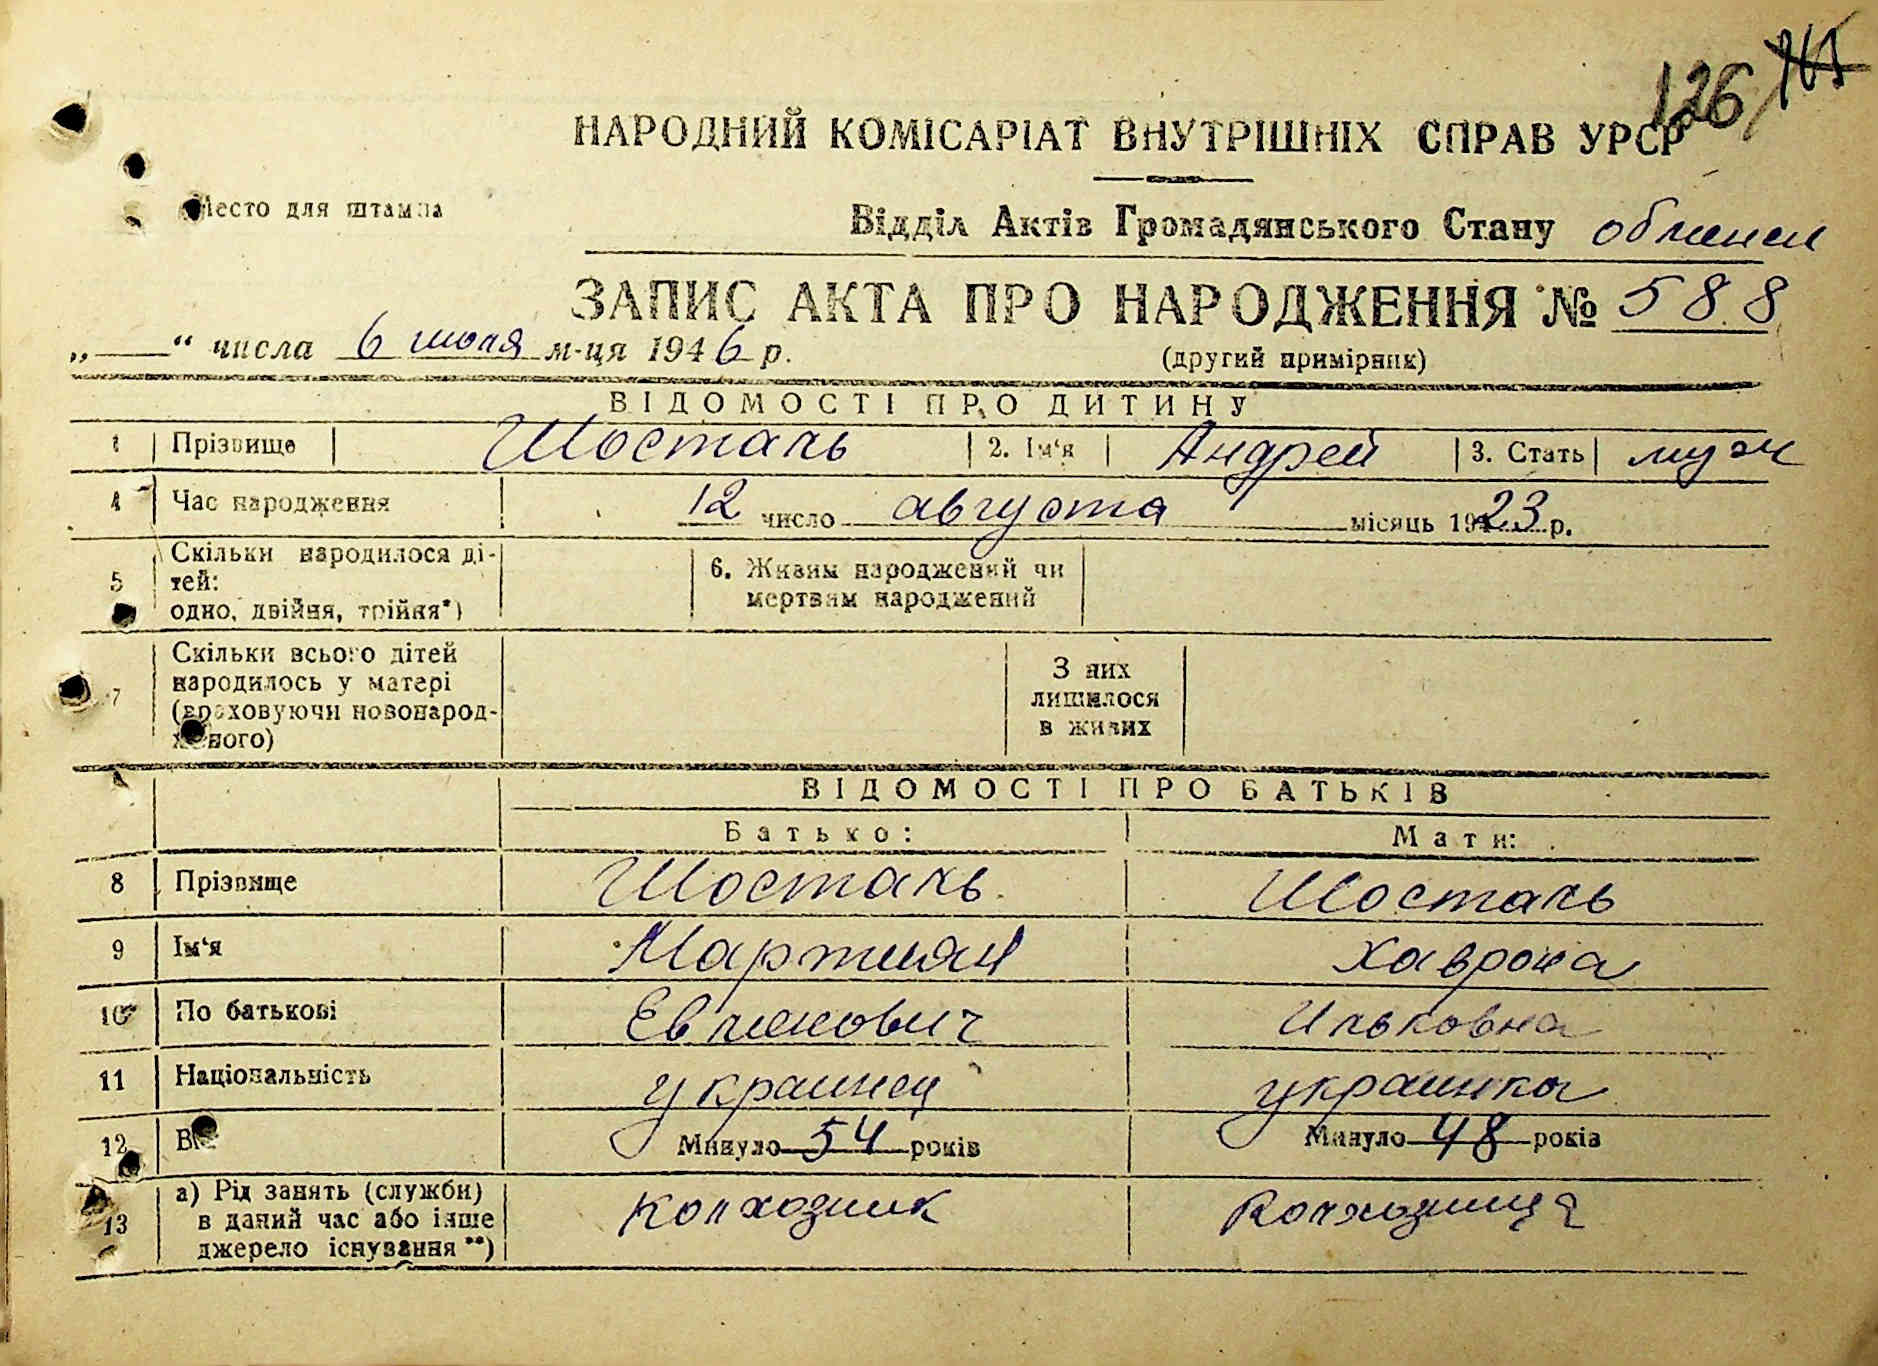 126
НАРОДНИЙ КОМІСАРІАТ ВНУТРІШНІХ СПРАВ УРСР
Место для штампа
Відділ Актів Громадянського Стану
ЗАПИС АКТА ПРО НАРОДЖЕННЯ № 588
„—“ числа 6 июля м-ця 1946 р.
(другий примірник)
ВІДОМОСТІ ПРО ДИТИНУ
1 Прізвище Шосталь 2. Ім‘я Андрей 3. Стать муж
4 Час народження 12 число августа місяць 1923 р.
5 Скільки народилося ді-
тей:
одно, двійня, трійня*)
6. Живим народжений чи
мертвим народжений
7 Скільки всього дітей
народилось у матері
(враховуючи новонарод-
женого)
З них
лишилося
в живих
ВІДОМОСТІ ПРО БАТЬКІВ
Батько: Мати:
8 Прізвище Шосталь Шосталь
9 Ім‘я Мартиян Хаврона
10 По батькові Ильковна
11 Національність украинец украинка
12 Вік Минуло 54 років Минуло 48 років
13 а) Рід занять (служби)
в даний час або інше
джерело існування **)
колхозник Колхозница